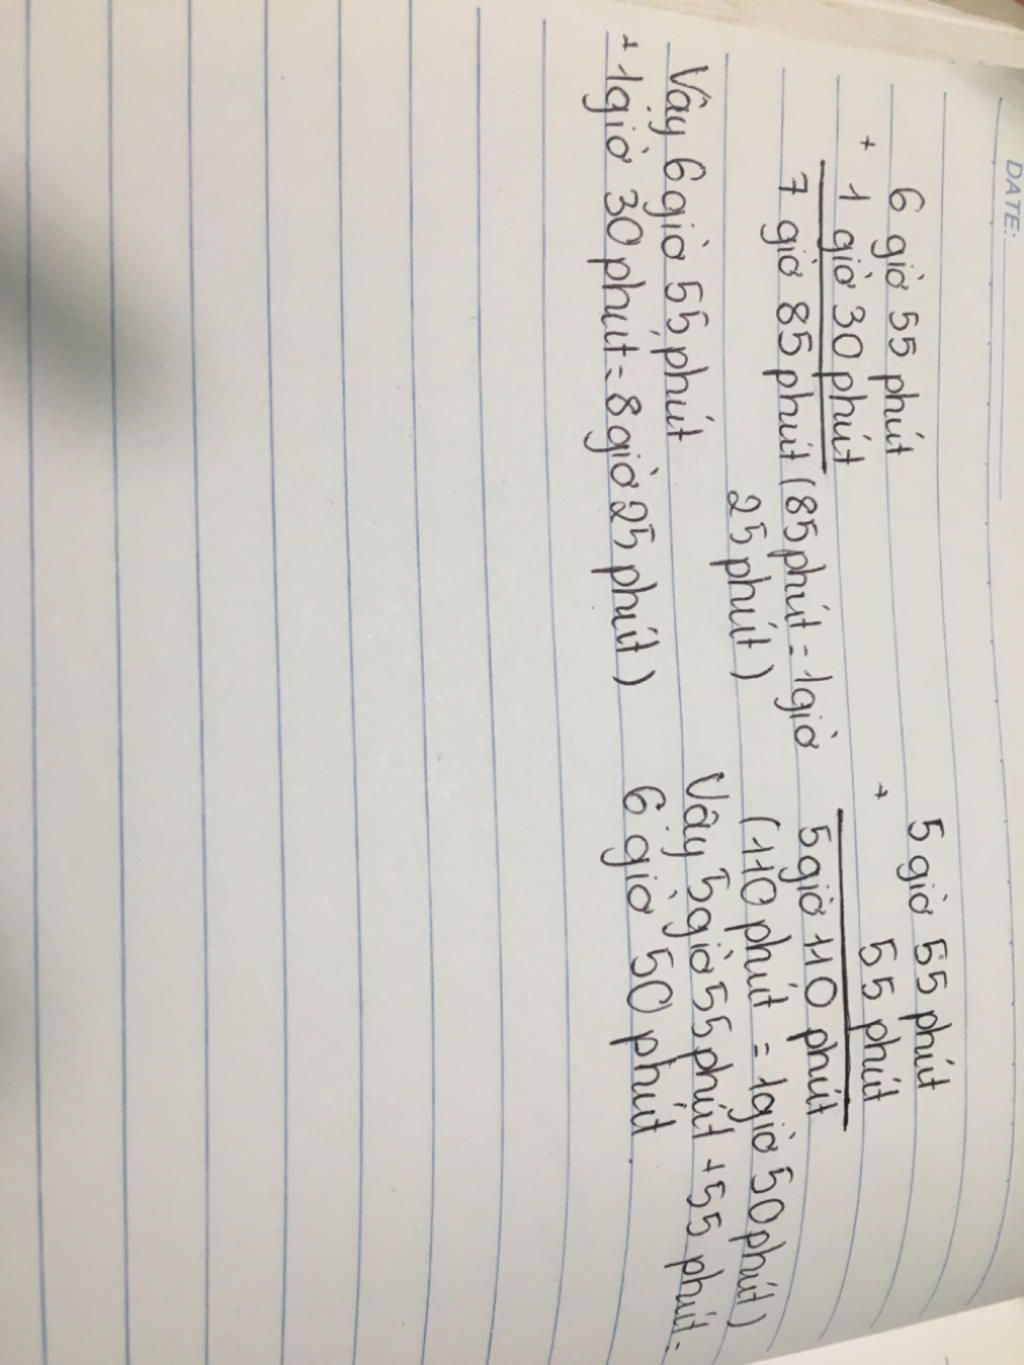 DATE:
6 giờ 55 phút
+
1 giờ 30 phút
7 giờ 85 phút (85 phút = 1giờ
25 phút)
Vây 6giờ 55 phút
+ 1giờ 30 phút = 8giờ 25 phút)
5 giờ 55 phút
+
55 phút
5giờ 110 phút
(110 phút = 1giờ 50phút)
Vây 5giờ 55phút + 55 phút =
6 giờ 50 phút.